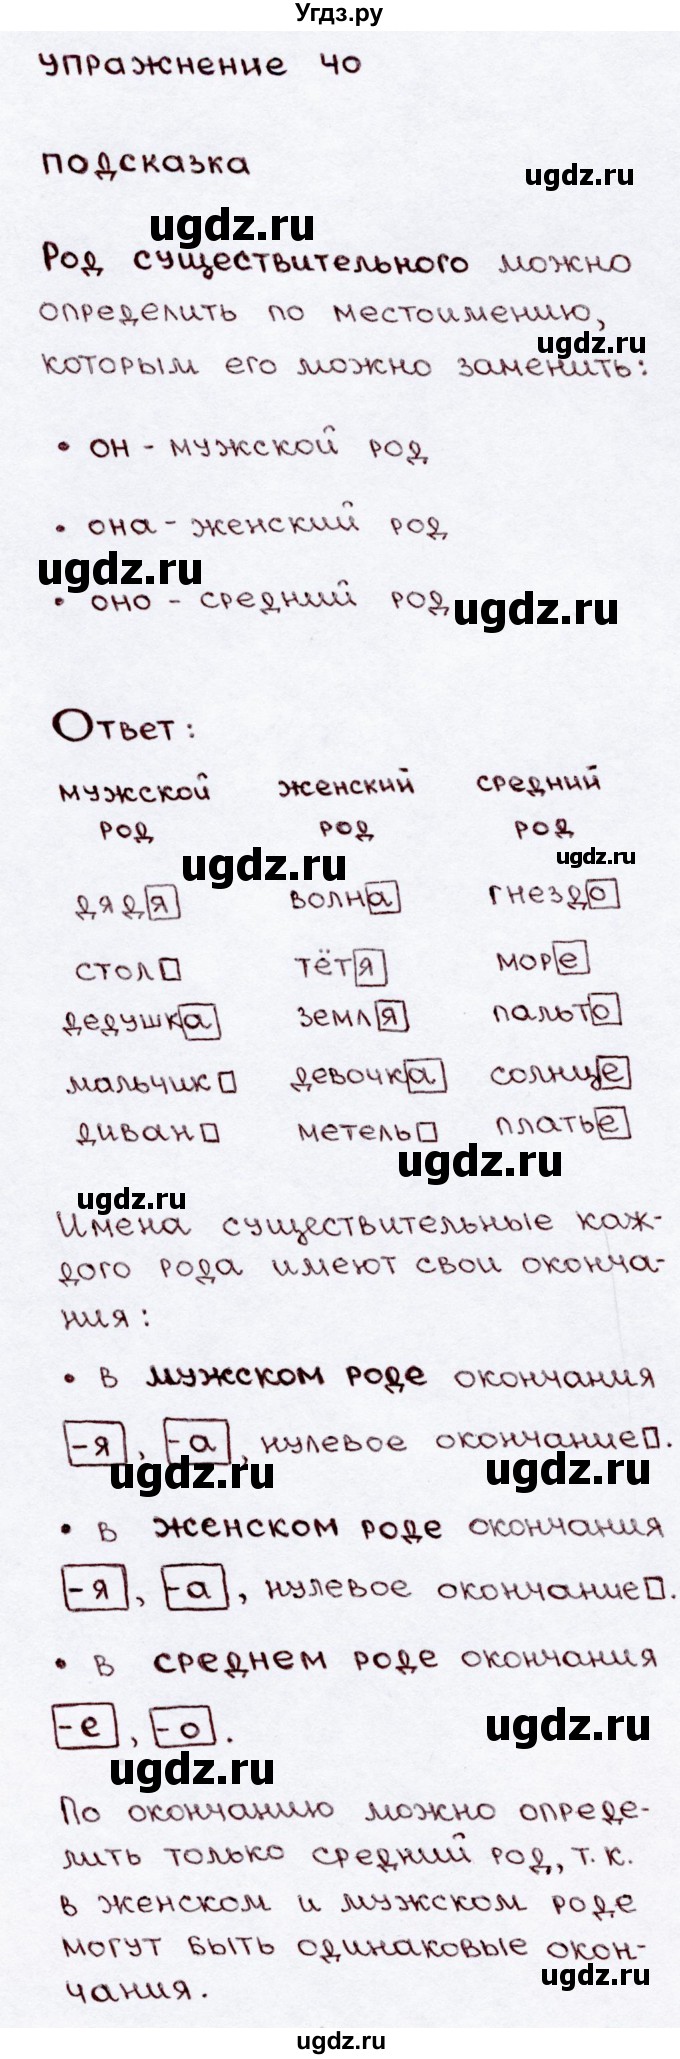 Угдз.ру
упражнение 40
подсказка
ugdz.ru
ugdz.ru
Род существительного можно
определить по местоимению,
ugdz.ru
которым его можно заменить:
• он - мужской род
• она - женский род
ugdz.ru
• оно - средний род
ugdz.ru
Ответ:
мужской женский средний
род род род
ugdz.ru ugdz.ru
дядя волна гнездо
стол□ тётя море
дедушка земля пальто
мальчик□ девочка солнце
диван□ метель□ платье
ugdz.ru
ugdz.ru
Имена существительные каж-
дого рода имеют свои оконча-
ния:
• в мужском роде окончания
-я, -а, нулевое окончание□.
ugdz.ru ugdz.ru
• в женском роде окончания
-я, -а, нулевое окончание□.
• в среднем роде окончания
-е, -о.
ugdz.ru
ugdz.ru
По окончанию можно опреде-
лить только средний род, т.к.
в женском и мужском роде
могут быть одинаковые окон-
ugdz.ru
чания.
ugdz.ru